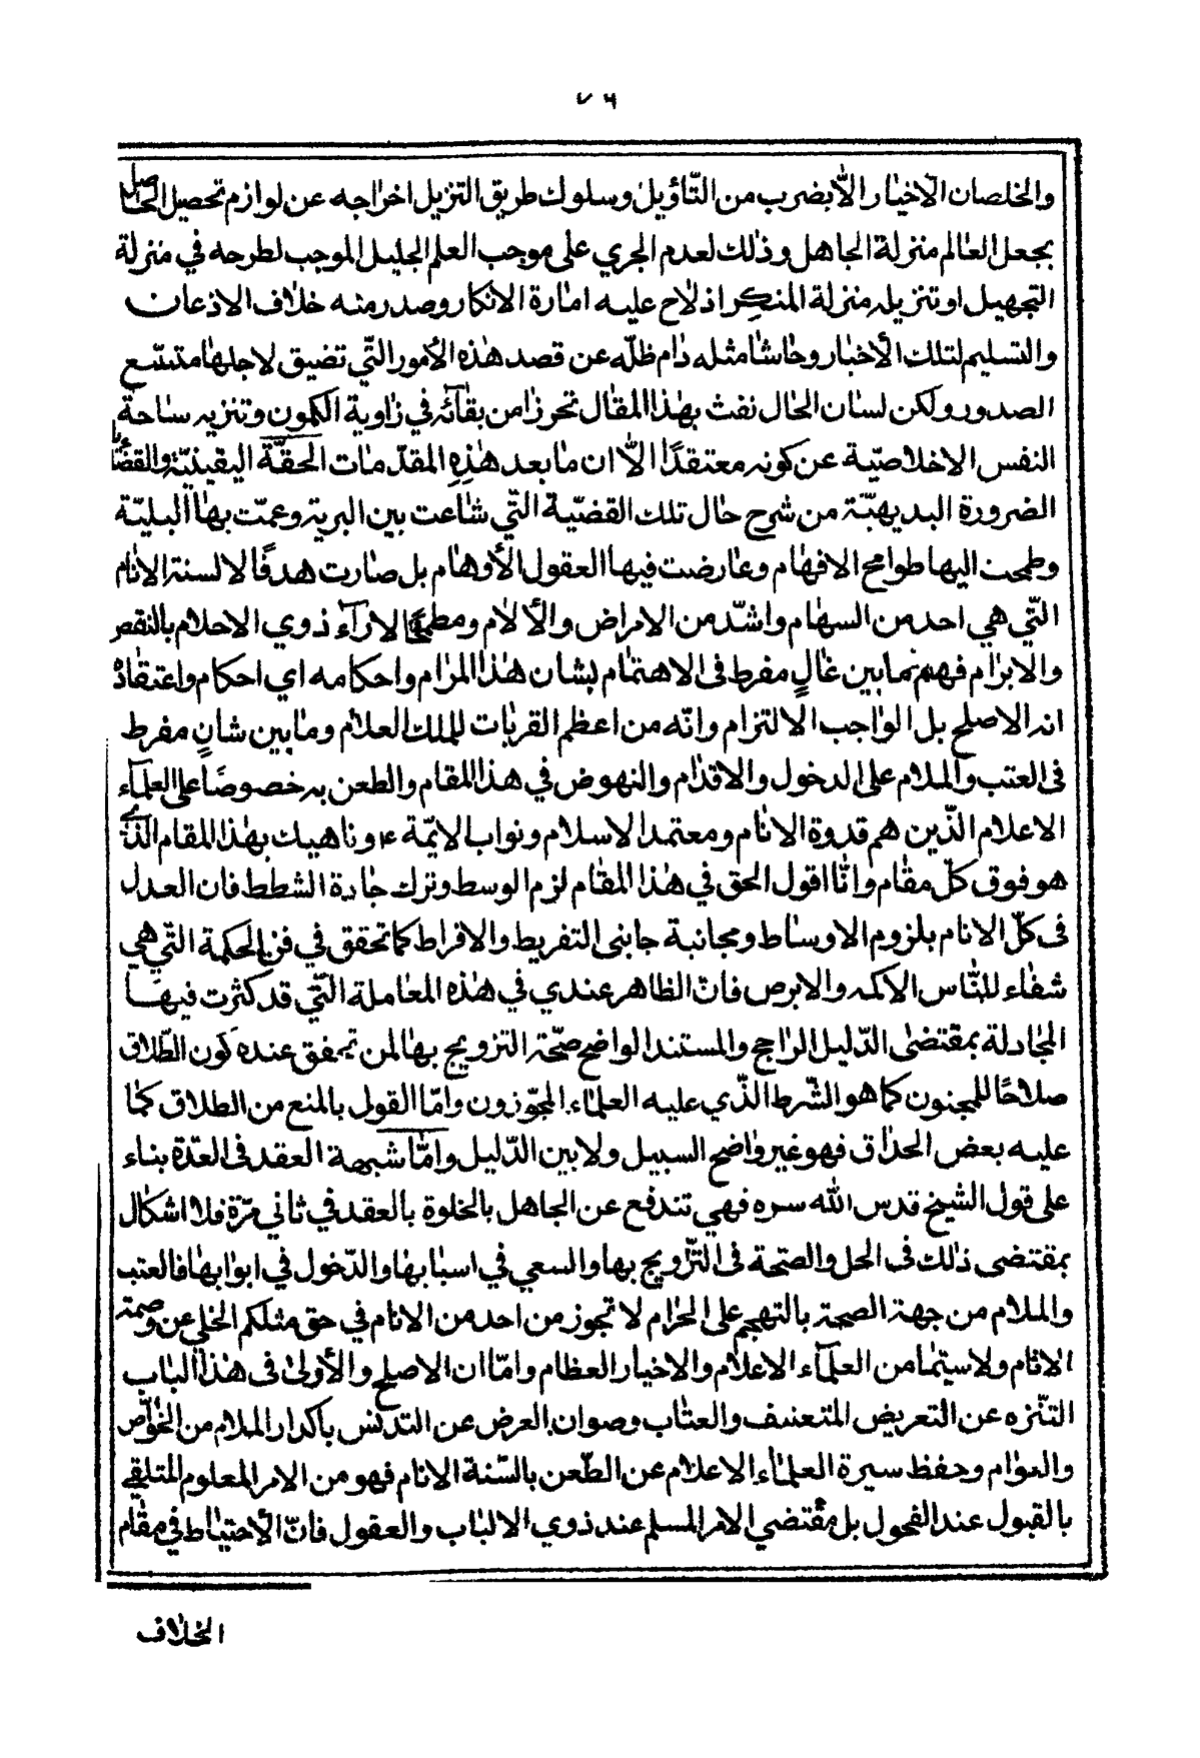 ٧٦
والخلصان الاخيار الّا بضرب من التّأويل وسلوك طريق التنزيل اخراجه عن لوازم تحصيل الحاصل
بجعل العالم منزلة الجاهل وذلك لعدم الجري على موجب العلم الجليل الموجب لطرحه في منزلة
التجهيل او تنزيله منزلة المنكر اذ لاح عليه امارة الانكار وصدر منه خلاف الاذعان
والتسليم لتلك الأخبار وحاشا مثله دام ظلّه عن قصد هذه الأمور التّي تضيق لاجلها متسّع
الصدور ولكن لسان الحال نفث بهذا المقال تحرزا من بقائه في زاوية الكمون وتنزيه ساحة
النفس الاخلاصيّة عن كونه معتقدًا الّا ان ما بعد هذِهِ المقدّمات الحقّة اليقينيّة والقضايا
الضرورة البديهيّة من شرح حال تلك القضيّة التّي شاعت بين البرية وعمّت بها البليّة
وطمحت اليها طوامح الافهام وعارضت فيها العقول الأوهام بل صارت هدفًا لالسنة الانام
التّي هي احد من السهام واشدّ من الامراض والألام ومطمحا لاراء ذوي الاحلام بالنقض
والابرام فهم ما بين غالٍ مفرط فى الاهتمام بشان هذا المرام واحكامه اي احكام واعتقاد
انه الاصلح بل الواجب الالتزام وانّه من اعظم القربات للملك العلام وما بين شانٍ مفرط
فى العتب والملام على الدخول والاقدام والنهوض في هذا المقام والطعن به خصوصًا على العلمآء
الاعلام الذّين هم قدوة الانام ومعتمد الاسلام ونواب الايمّة ع وناهيك بهذا المقام الذّي
هو فوق كلّ مقام وانّا اقول الحق في هذا المقام لزم الوسط وترك جادة الشطط فان العدل
فى كلّ الانام بلزوم الاوساط ومجانبة جابنى التفريط والافراط كما تحقق في فن الحكمة التّي هي
شفاء للنّاس الاكمه والابرص فانّ الظاهر عندي في هذه المعاملة التّي قد كثرت فيها
المجادلة بمقتضى الدّليل الراجح والمستند الواضح صحّة التزويج بها لمن تحقق عنده كون الطّلاق
صلاحًا للمجنون كما هو الشّرط الذّي عليه العلمآء المجّوزون وامّا القول بالمنع من الطلاق كما
عليه بعض الحذاق فهو غير واضح السبيل ولا بين الدّليل وامّا شبهة العقد فى العدّة بناء
على قول الشيخ قدس الله سره فهي تندفع عن الجاهل بالخلوة بالعقد في ثاني مرّة فلا اشكال
بمقتضى ذلك فى الحل والصّحة فى التّزويج بها والسعي في اسبابها والدّخول في ابوابها فالعتب
والملام من جهة الصحة بالتهجم على الحرام لا تجوز من احد من الانام في حق مثلكم الخلي عن وصمة
الاثام ولا سيّما من العلمآء الاعلام والاخيار العظام وامّا ان الاصلح والأولى فى هذا الباب
التنّزه عن التعريض المتعنف والعتاب وصوان العرض عن التدنس بأكدار الملام من الخواّص
والعوام وحفظ سيرة العلمآء الاعلام عن الطّعن بالسّنة الانام فهو من الامر المعلوم المتلقى
بالقبول عند الفحول بل مقتضي الامر المسلم عند ذوي الالباب والعقول فانّ الأحتياط في مقام
الخلاف